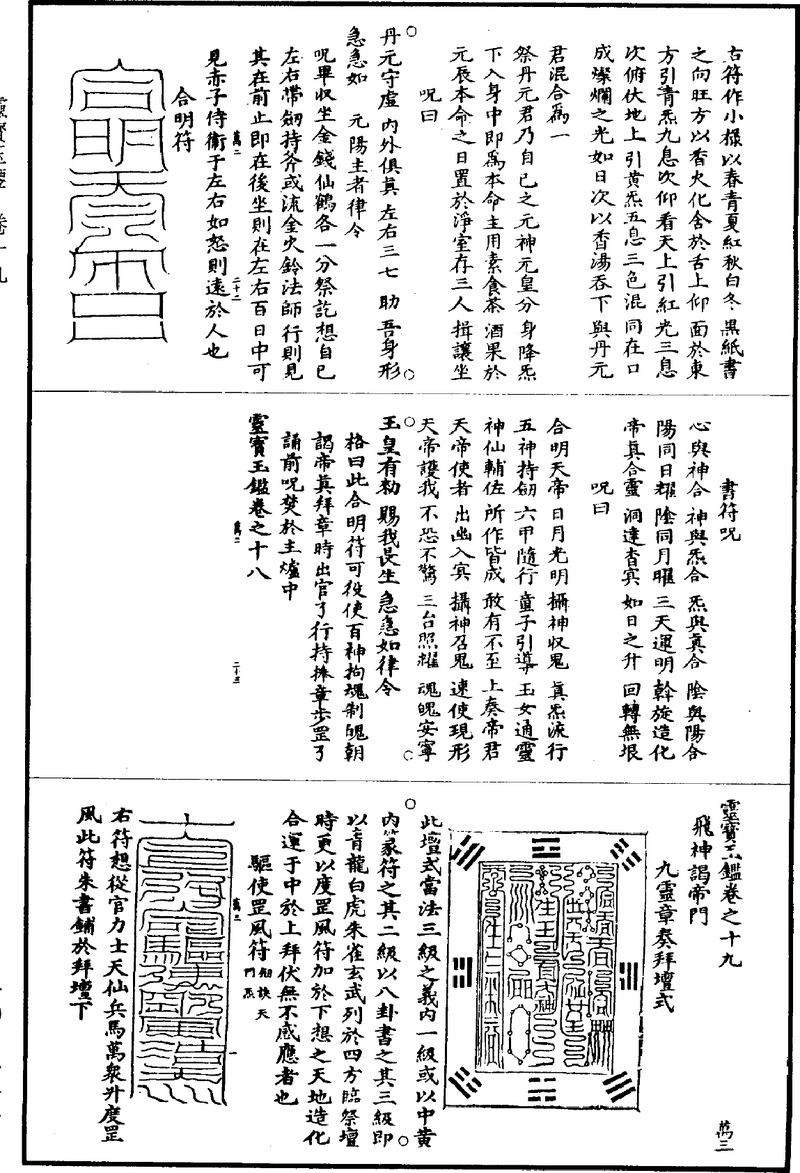 右符作小樣以春青夏紅秋白冬黑紙書
之向旺方以香火化含於舌上仰面於東
方引青炁九息次仰看天上引紅光三息
次俯伏地上引黄炁五息三色混同在口
成燦爛之光如日次以香湯吞下與丹元
君混合爲一
祭丹元君乃自己之元神元皇分身降炁
下入身中即爲本命主用素食茶酒果於
元辰本命之日置於淨室存三人揖讓坐
呪曰
丹元守虛 內外俱真 左右三七 助吾身形
急急如 元陽主者律令
呪畢収坐金錢仙鶴各一分祭訖想自己
左右帶劒持斧或流金火鈴法師行則見
其在前止即在後坐則在左右百日中可
見赤子侍衛于左右如怒則遠於人也
萬二
二十二
合明符
書符呪
心與神合 神與炁合 炁與真合 陰與陽合
陽同日耀 陰同月曜 三天運明 斡旋造化
帝真合靈 洞達杳冥 如日之升 回轉無垠
呪曰
合明天帝 日月光明 攝神収鬼 真炁流行
五神持劒 六甲隨行 童子引導 玉女通靈
神仙輔佐 所作皆成 敢有不至 上奏帝君
天帝使者 出幽入冥 攝神召鬼 速使現形
天帝護我 不恐不驚 三台照耀 魂魄安寧
玉皇有勑 賜我長生 急急如律令
格曰此合明符可役使百神拘魂制魄朝
謁帝真拜章時出官了行持拜章步罡了
誦前呪焚於主爐中
靈寶玉鑑卷之十八
萬二
二十三
靈寶玉鑑卷之十九
萬三
飛神謁帝門
九靈章奏拜壇式
此壇式當法三級之義内一級或以中黄
内篆符之其二級以八卦書之其三級即
以青龍白虎朱雀玄武列於四方臨祭壇
時更以度罡風符加於下想之天地造化
合運于中於上拜伏無不感應者也
驅使罡風符
萬三
一
右符想從官力士天仙兵馬萬衆升度罡
風此符朱書鋪於拜壇下